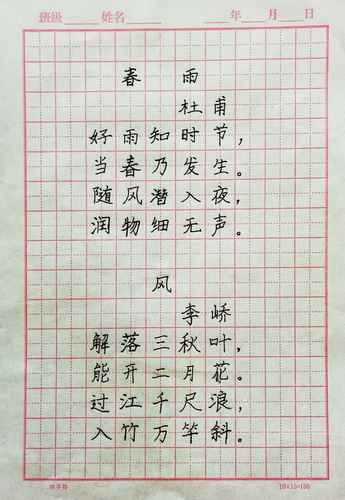 班级______姓名______ ____年____月____日
春 雨
杜甫
好雨知时节，
当春乃发生。
随风潜入夜，
润物细无声。
风
李峤
解落三秋叶，
能开二月花。
过江千尺浪，
入竹万竿斜。
田字格 10×15=150